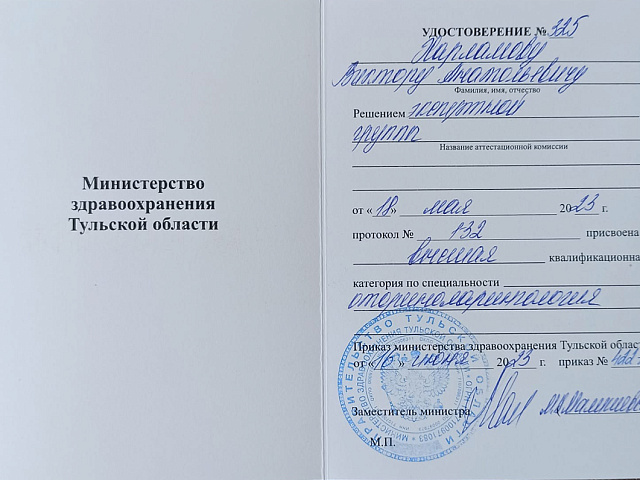 Министерство
здравоохранения
Тульской области
УДОСТОВЕРЕНИЕ № 325
Харламову
Виктору Анатольевичу
Фамилия, имя, отчество
Решением экспертной
группы
Название аттестационной комиссии
от « 18 » мая 2023 г.
протокол № 132 присвоена
высшая квалификационна
категория по специальности
оториноларингология
Приказ министерства здравоохранения Тульской облас
от « 16 » июня 2023 г. приказ №
Заместитель министра
М.П.